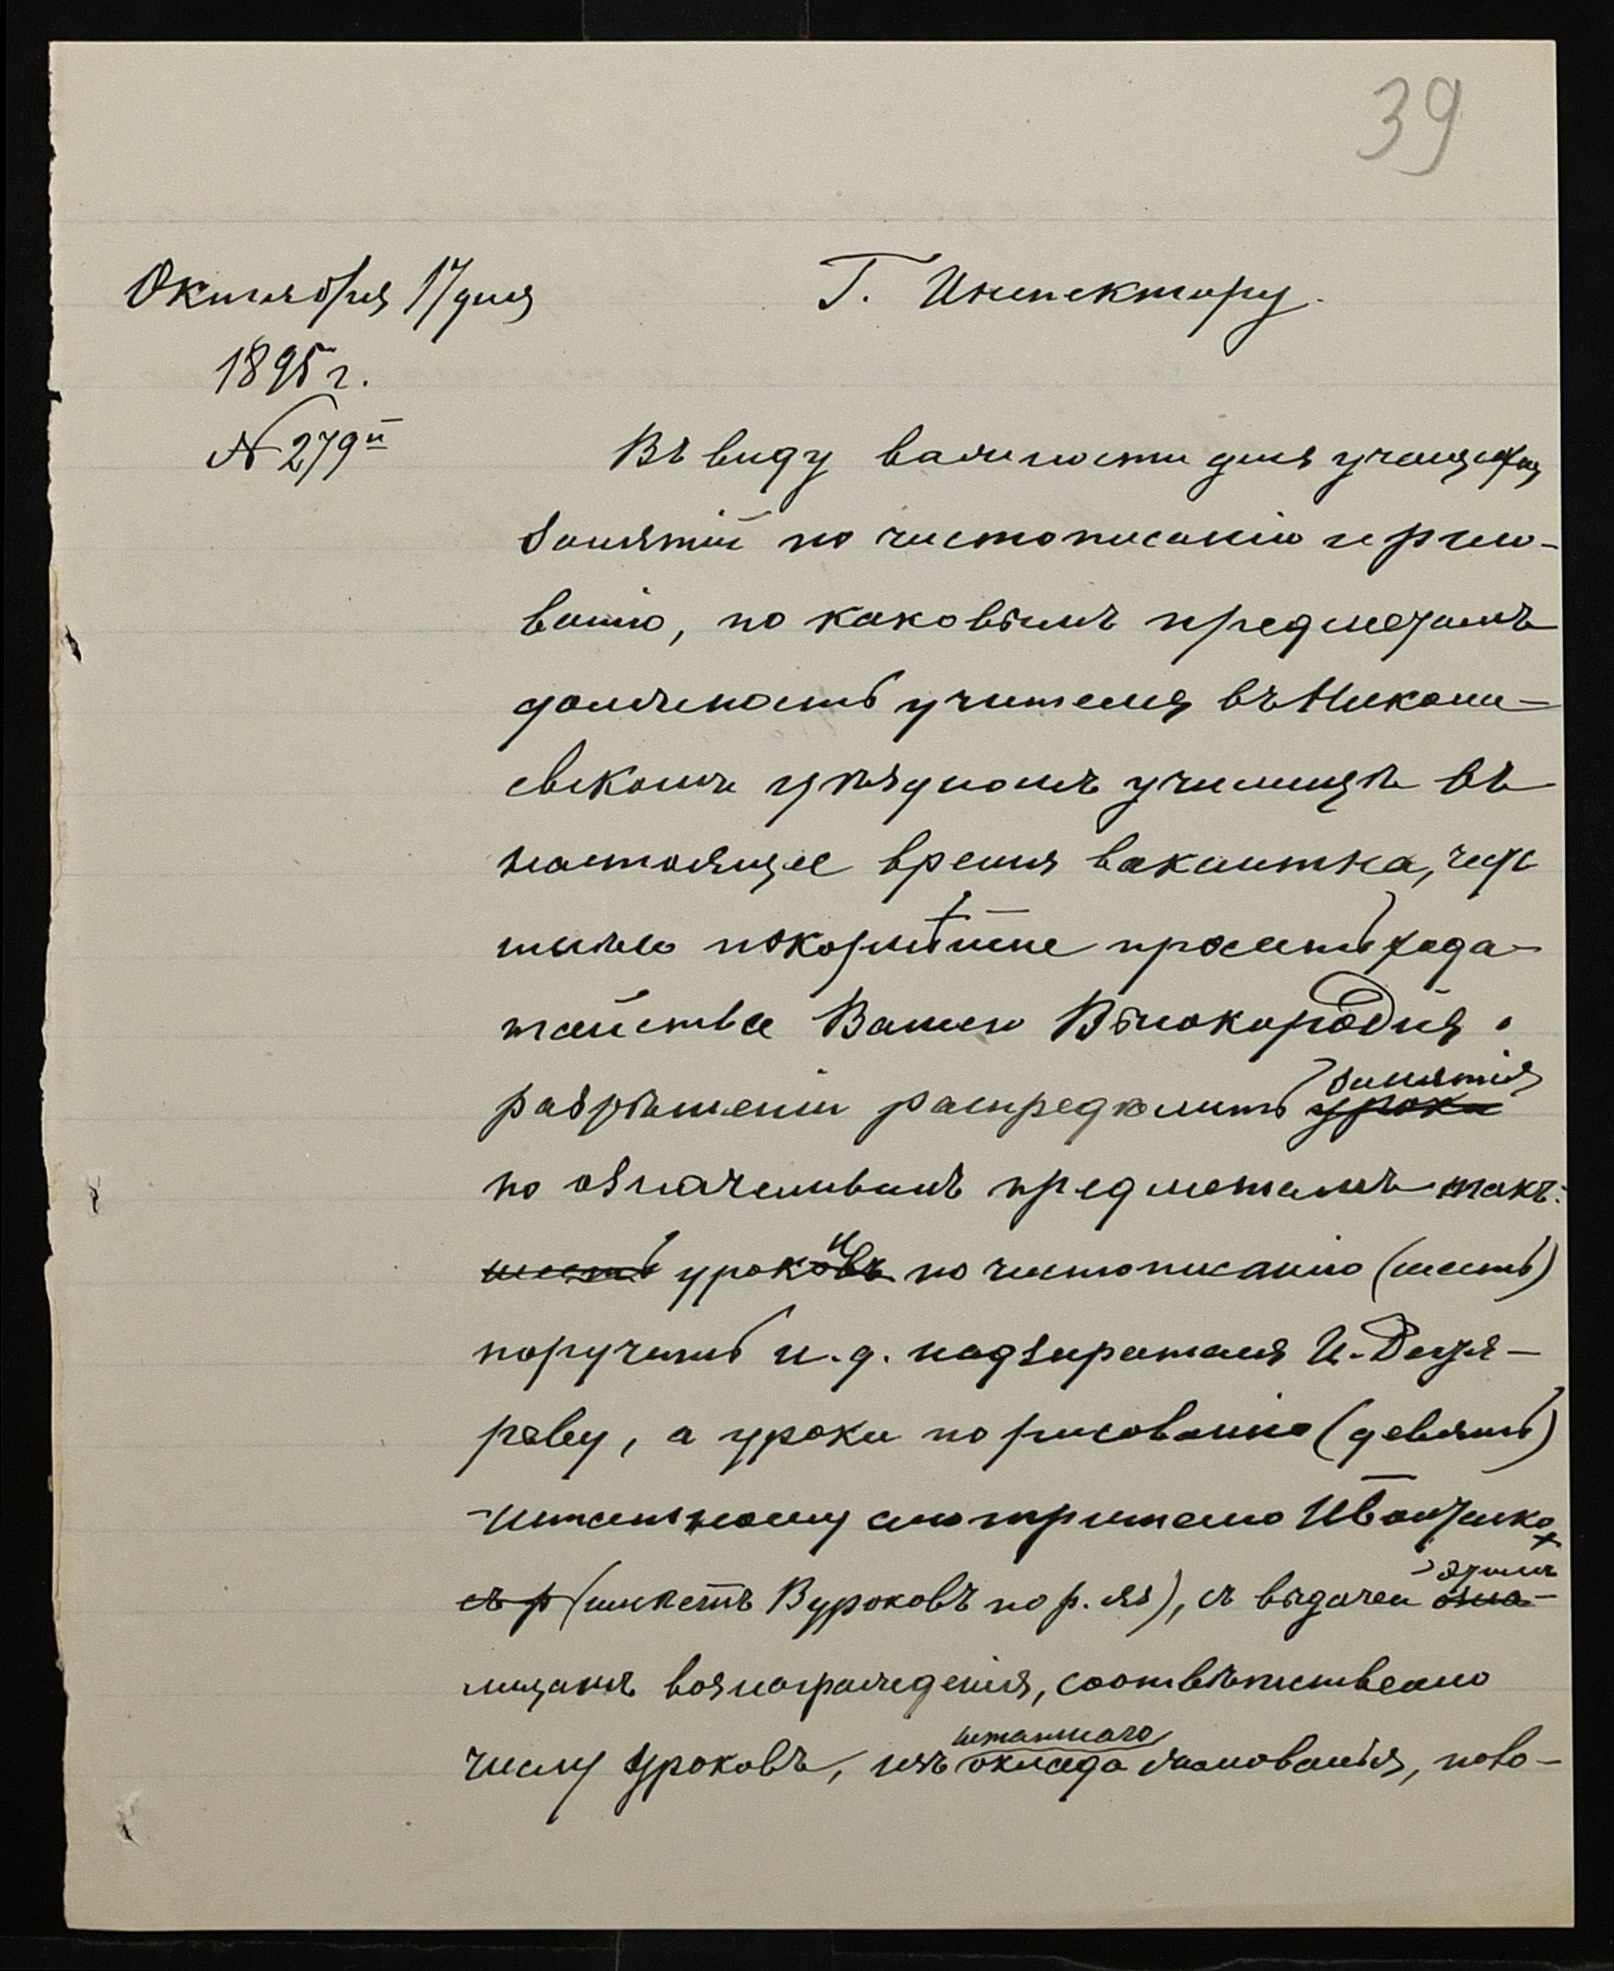 39
Октября 17 дня
Г. Инспектору.
1895 г.
№ 279й
Въ виду важности для учащихся
занятій по чистописанію и рисо-
ванію, по каковымъ предметамъ
должность учителя въ Никола-
евскомъ уѣздномъ училищѣ въ
настоящее время вакантна, честь
имѣю покорнѣйше просить хода-
тайства Вашего Высокородія о
разрѣшеніи распредѣлить занятія
уроки
по означеннымъ предметамъ такъ:
шесть уроковъ и по чистописанію (шесть)
поручить и. д. надзирателя И.
реву, а уроки по рисованію (девять)
штатному смотрителю
съ р (имѣетъ 8 уроковъ по р. яз), съ выдачей этимъ
озна-
лицамъ вознагражденія, соотвѣтственно
штатнаго
числу уроковъ, изъ оклада жалованья, поло-